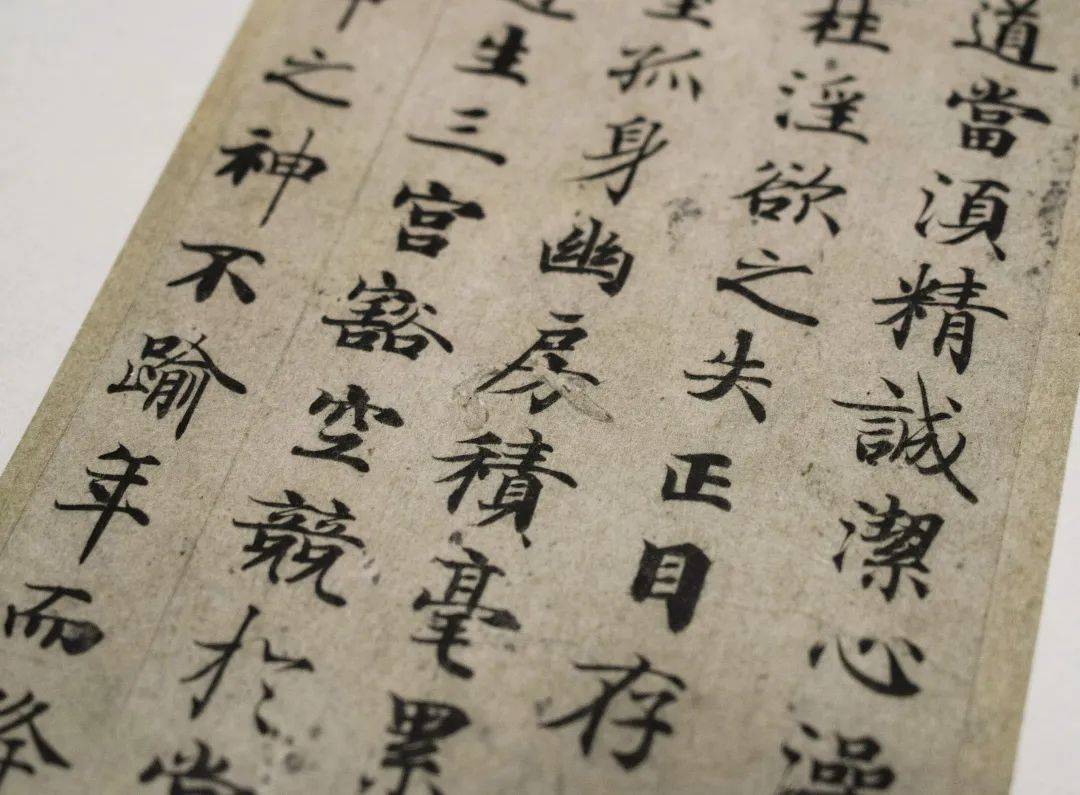 道當湏精誠潔心澡
柱淫欲之失正目存
孤身幽房積毫累
生三宮豁空競於
之神不踰年而